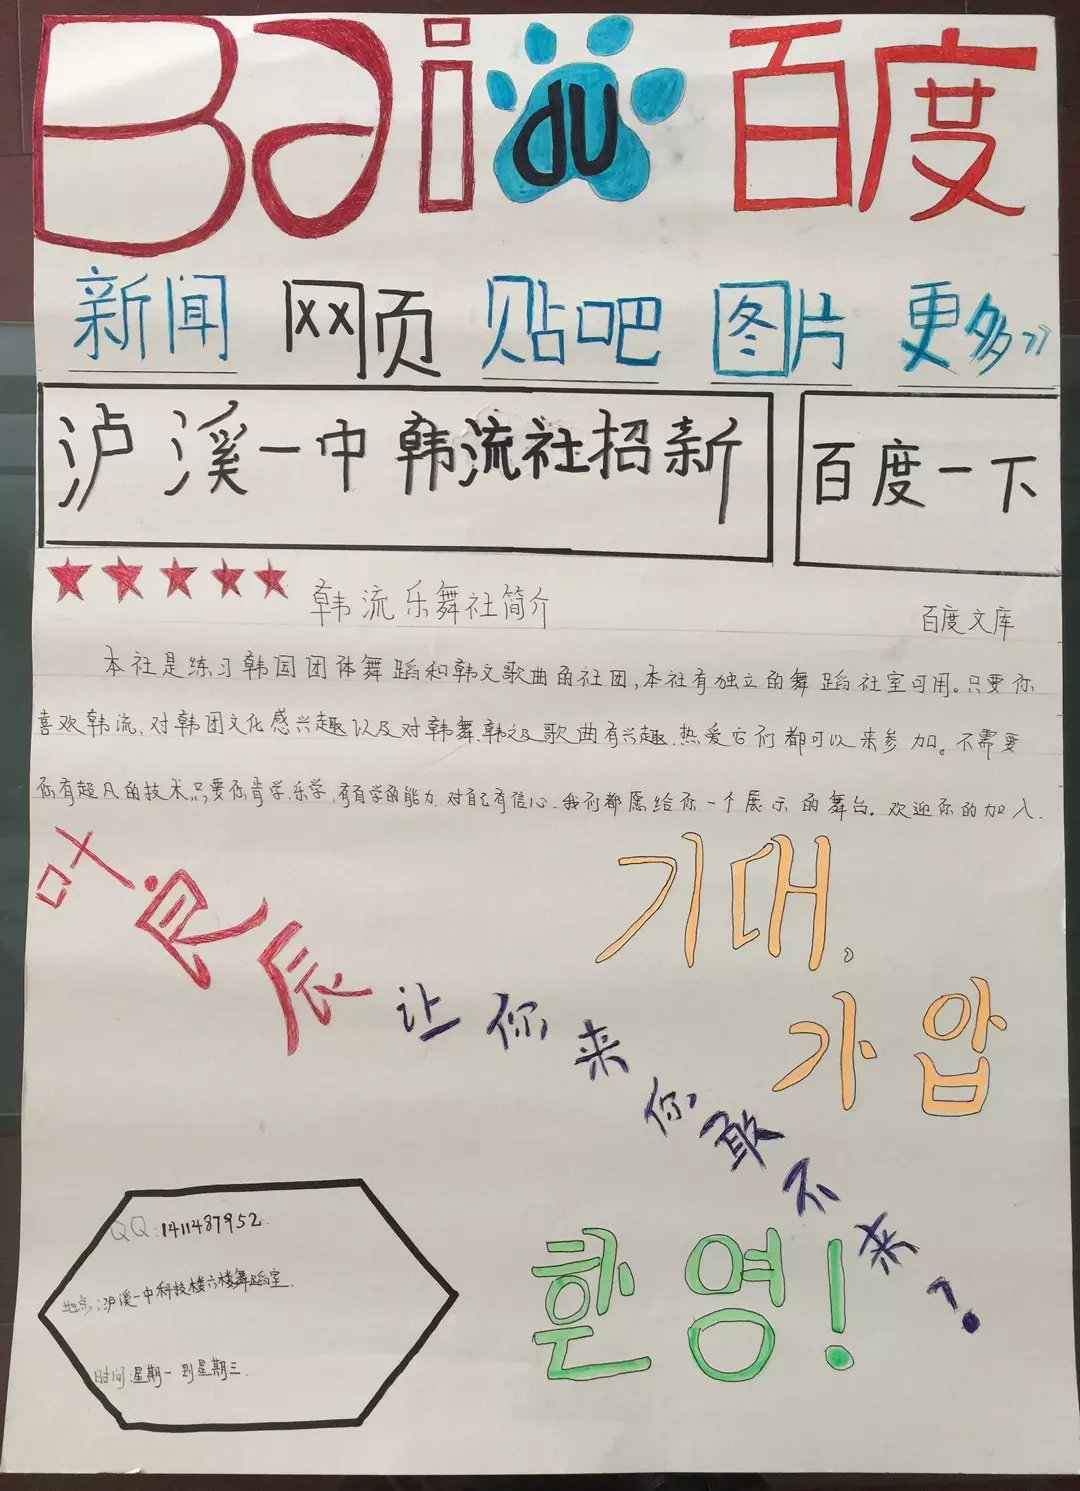 Bai du 百度
新闻 网页 贴吧 图片 更多>>
泸溪一中韩流社招新 百度一下
韩流乐舞社简介 百度文库
本社是练习韩国团体舞蹈和韩文歌曲的社团,本社有独立的舞蹈社室可用。只要你
喜欢韩流,对韩团文化感兴趣以及对韩舞.韩文及歌曲有兴趣.热爱它们都可以来参加。不需要
你有超凡的技术,只要你肯学.乐学,有自学的能力.对自己有信心.我们都愿给你一个展示的舞台。欢迎你的加入.
叶良辰让你来你敢不来?
기대.
가 압
환영!
QQ:1411487952.
地点:泸溪一中科技楼六楼舞蹈室.
时间:星期一到星期三.